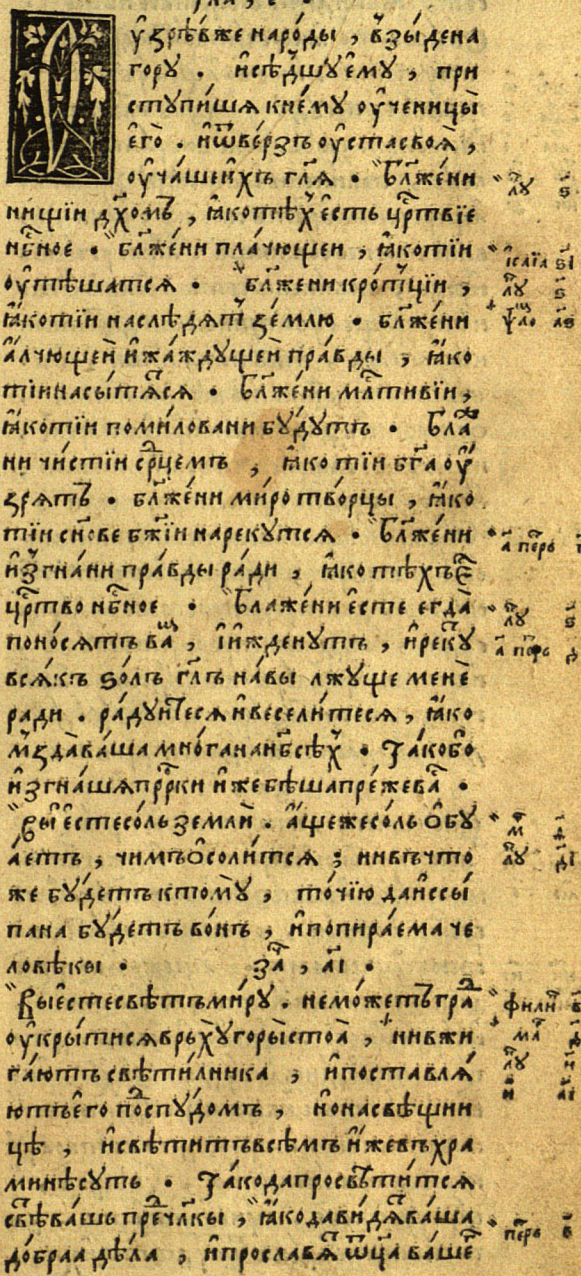 Ѹзрѣвже народы, взыдена
гору. исѣдшуему, при
ступишя кнему оученицы
его. иѿверзъ оустасвоя,
оучашеихъ гл҃я. Бл҃жени
нищїи дх҃омъ, ꙗкотѣхъ есть цр҃твїе
нбⷭ҇ное. бл҃жени плачющеи, ꙗкотїи
оутѣшатся. бл҃жени кротцїи,
ꙗкотїи наслѣдятъ землю. бл҃жени
алчющеи ижаждущеи правды, ꙗко
тїинасытятся. Бл҃жени млⷭ҇тивїи,
ꙗкотїи помиловани будутъ. Бл҃же
ни чистїи срⷣцемъ, ꙗко тїи бг҃а оу
зрятъ. бл҃жени миротворцы, ꙗко
тїи сн҃ове бж҃їи нарекутся. Бл҃жени
изгнани правды ради, ꙗко тѣхъ еⷭ҇
црⷭ҇тво нбⷭ҇ное. Блажени есте егда
поносятъ ваⷨ, иижденутъ, ирекꙋ
всякъ ѕолъ гл҃ъ навы лжуще мене
ради. радуитеся ивеселитеся, ꙗко
мзда ваша многа нанбⷭ҇ѣхъ. Тако бо
изгнашя прⷪ҇рки иже бѣша прежеваⷭ҇.
Вы естесоль земли. ащежесоль обу
аетъ, чимъ осолится; нивъчто
же будетъ ктому, точїю даиссы
пана будетъ вонъ, ипопираема че
ловѣкы. заⷱ҇, аі.
Вы естесвѣтъ миру. неможетъ граⷣ
оукрытися врьху горы стоа, нивжи
гаютъ свѣтилника, ипоставля
ютъ его поⷣспудомъ, инасвѣщни
цѣ, исвѣтитъ всѣмъ ижевъхра
минѣсуть. Тако да просвѣтится
свѣⷮвашь преⷣчл҃кы, ꙗкода видяⷮваша
добраа дѣла, ипрославяⷮ ѿц҃а вашеⷢ҇